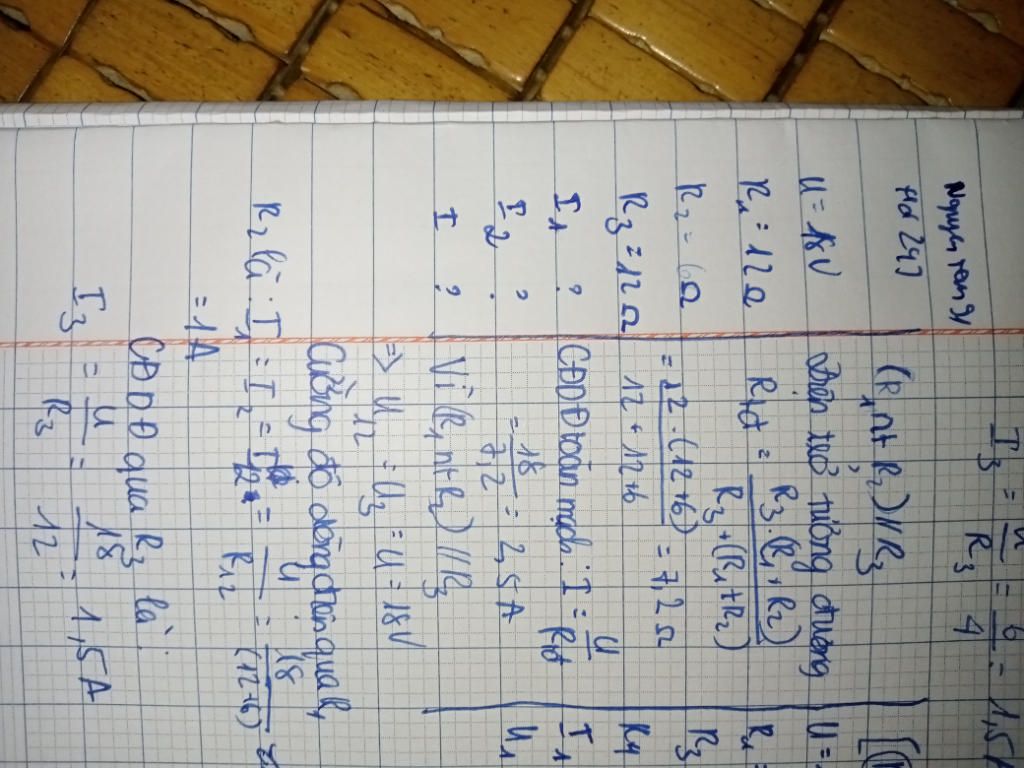 I3 = U/R3 = 6/4 = 1,5A
U = 18V
R1 = 12Ω
R2 = 6Ω
R3 = 12Ω
I1 ?
I2 ?
I ?
(R1 nt R2) // R3
điện trở tương đương
Rtđ = R3.(R1+R2)/R3+(R1+R2)
= 12.(12+6)/12+12+6 = 7,2Ω
CĐDĐ toàn mạch: I = U/Rtđ
= 18/7,2 = 2,5A
Vì (R1 nt R2) // R3
=> U12 = U3 = U = 18V
Cường độ dòng điện qua R1
R2 là: I1 = I2 = I12 = U/R12 = 18/(12+6) =
= 1A
CĐDĐ qua R3 là:
I3 = U/R3 = 18/12 = 1,5A
U =
R1 =
R3
R4
I1
U1